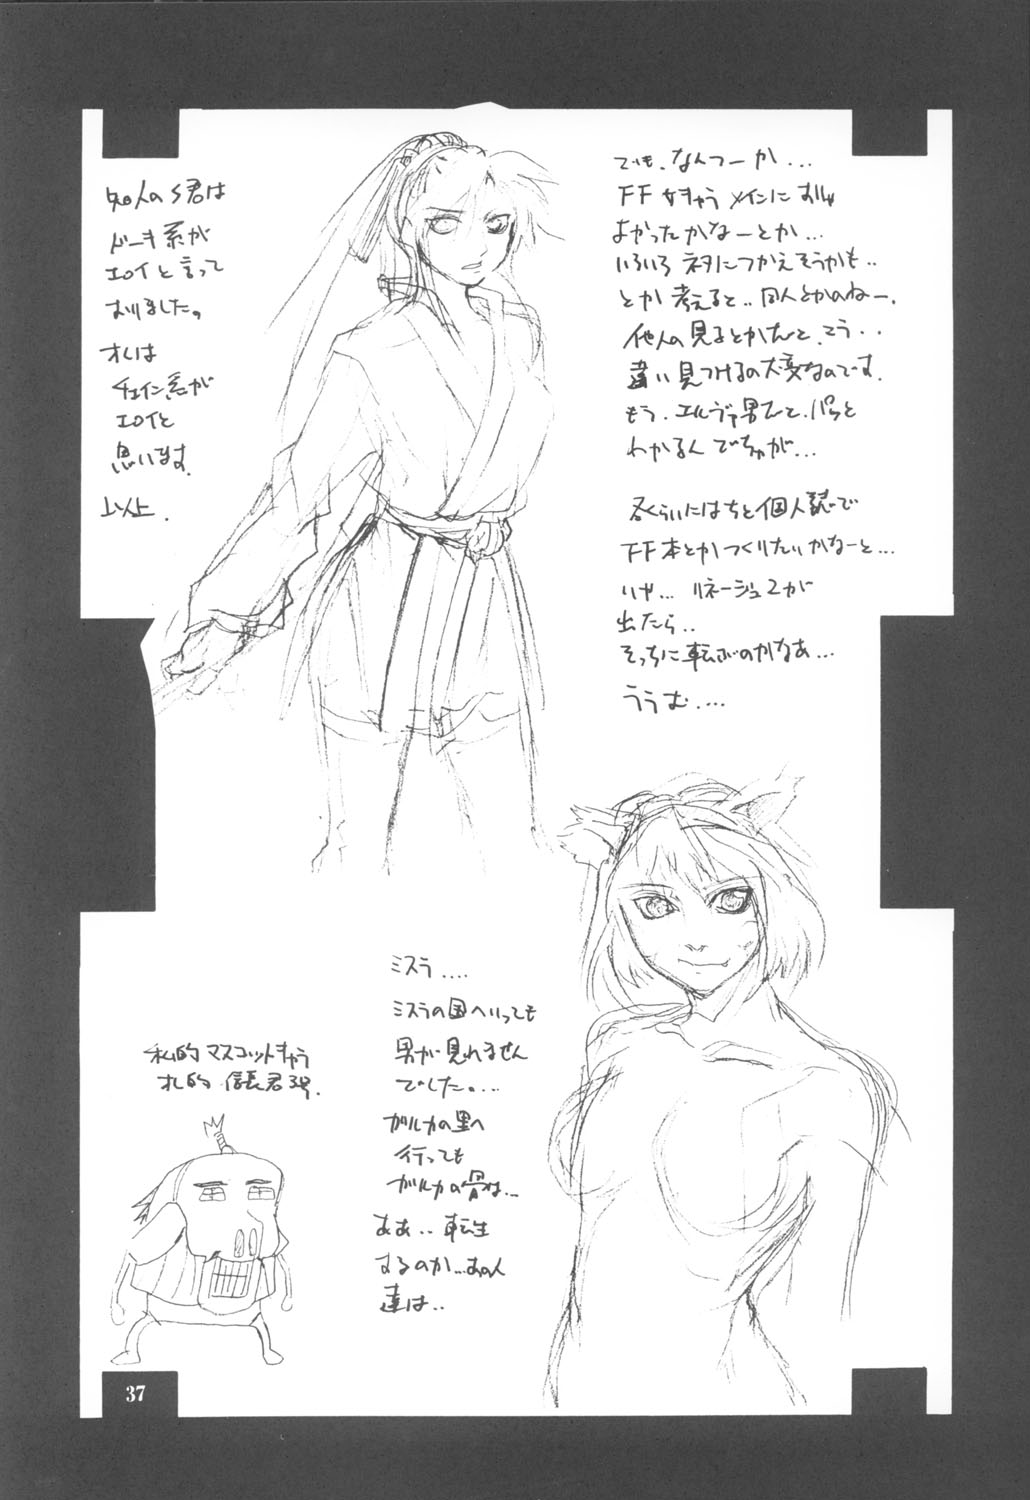 でも、なんつーか...
FF 女キャラ メインに すりゃ
よかったかなーとか...
いろいろ ネタにつかえそうかも..
とか 考えると.. 同人とかのねー.
他人の 見るとかだと、こう..
違い 見つけるの大変なのです.
もう、エルヴァ男だと、パッと
わかるんでちゅが...
冬くらいには ちと 個人誌で
FF本とか つくりたいかなーと...
いや... リネージュ2が
出たら..
そっちに 転ぶのかなあ...
ううむ....
知人の S君は
ドーキ系が
エロイと言って
おりました。
オレは
チェイン系が
エロイと
思います.
以上.
ミスラ....
ミスラの国へいっても
男が見れません
でした。...
ガルカの里へ
行っても
ガルカの骨は...
ああ.. 転生
するのか...あの人
達は..
私的 マスコットキャラ
オレ的 信長君3号.
37